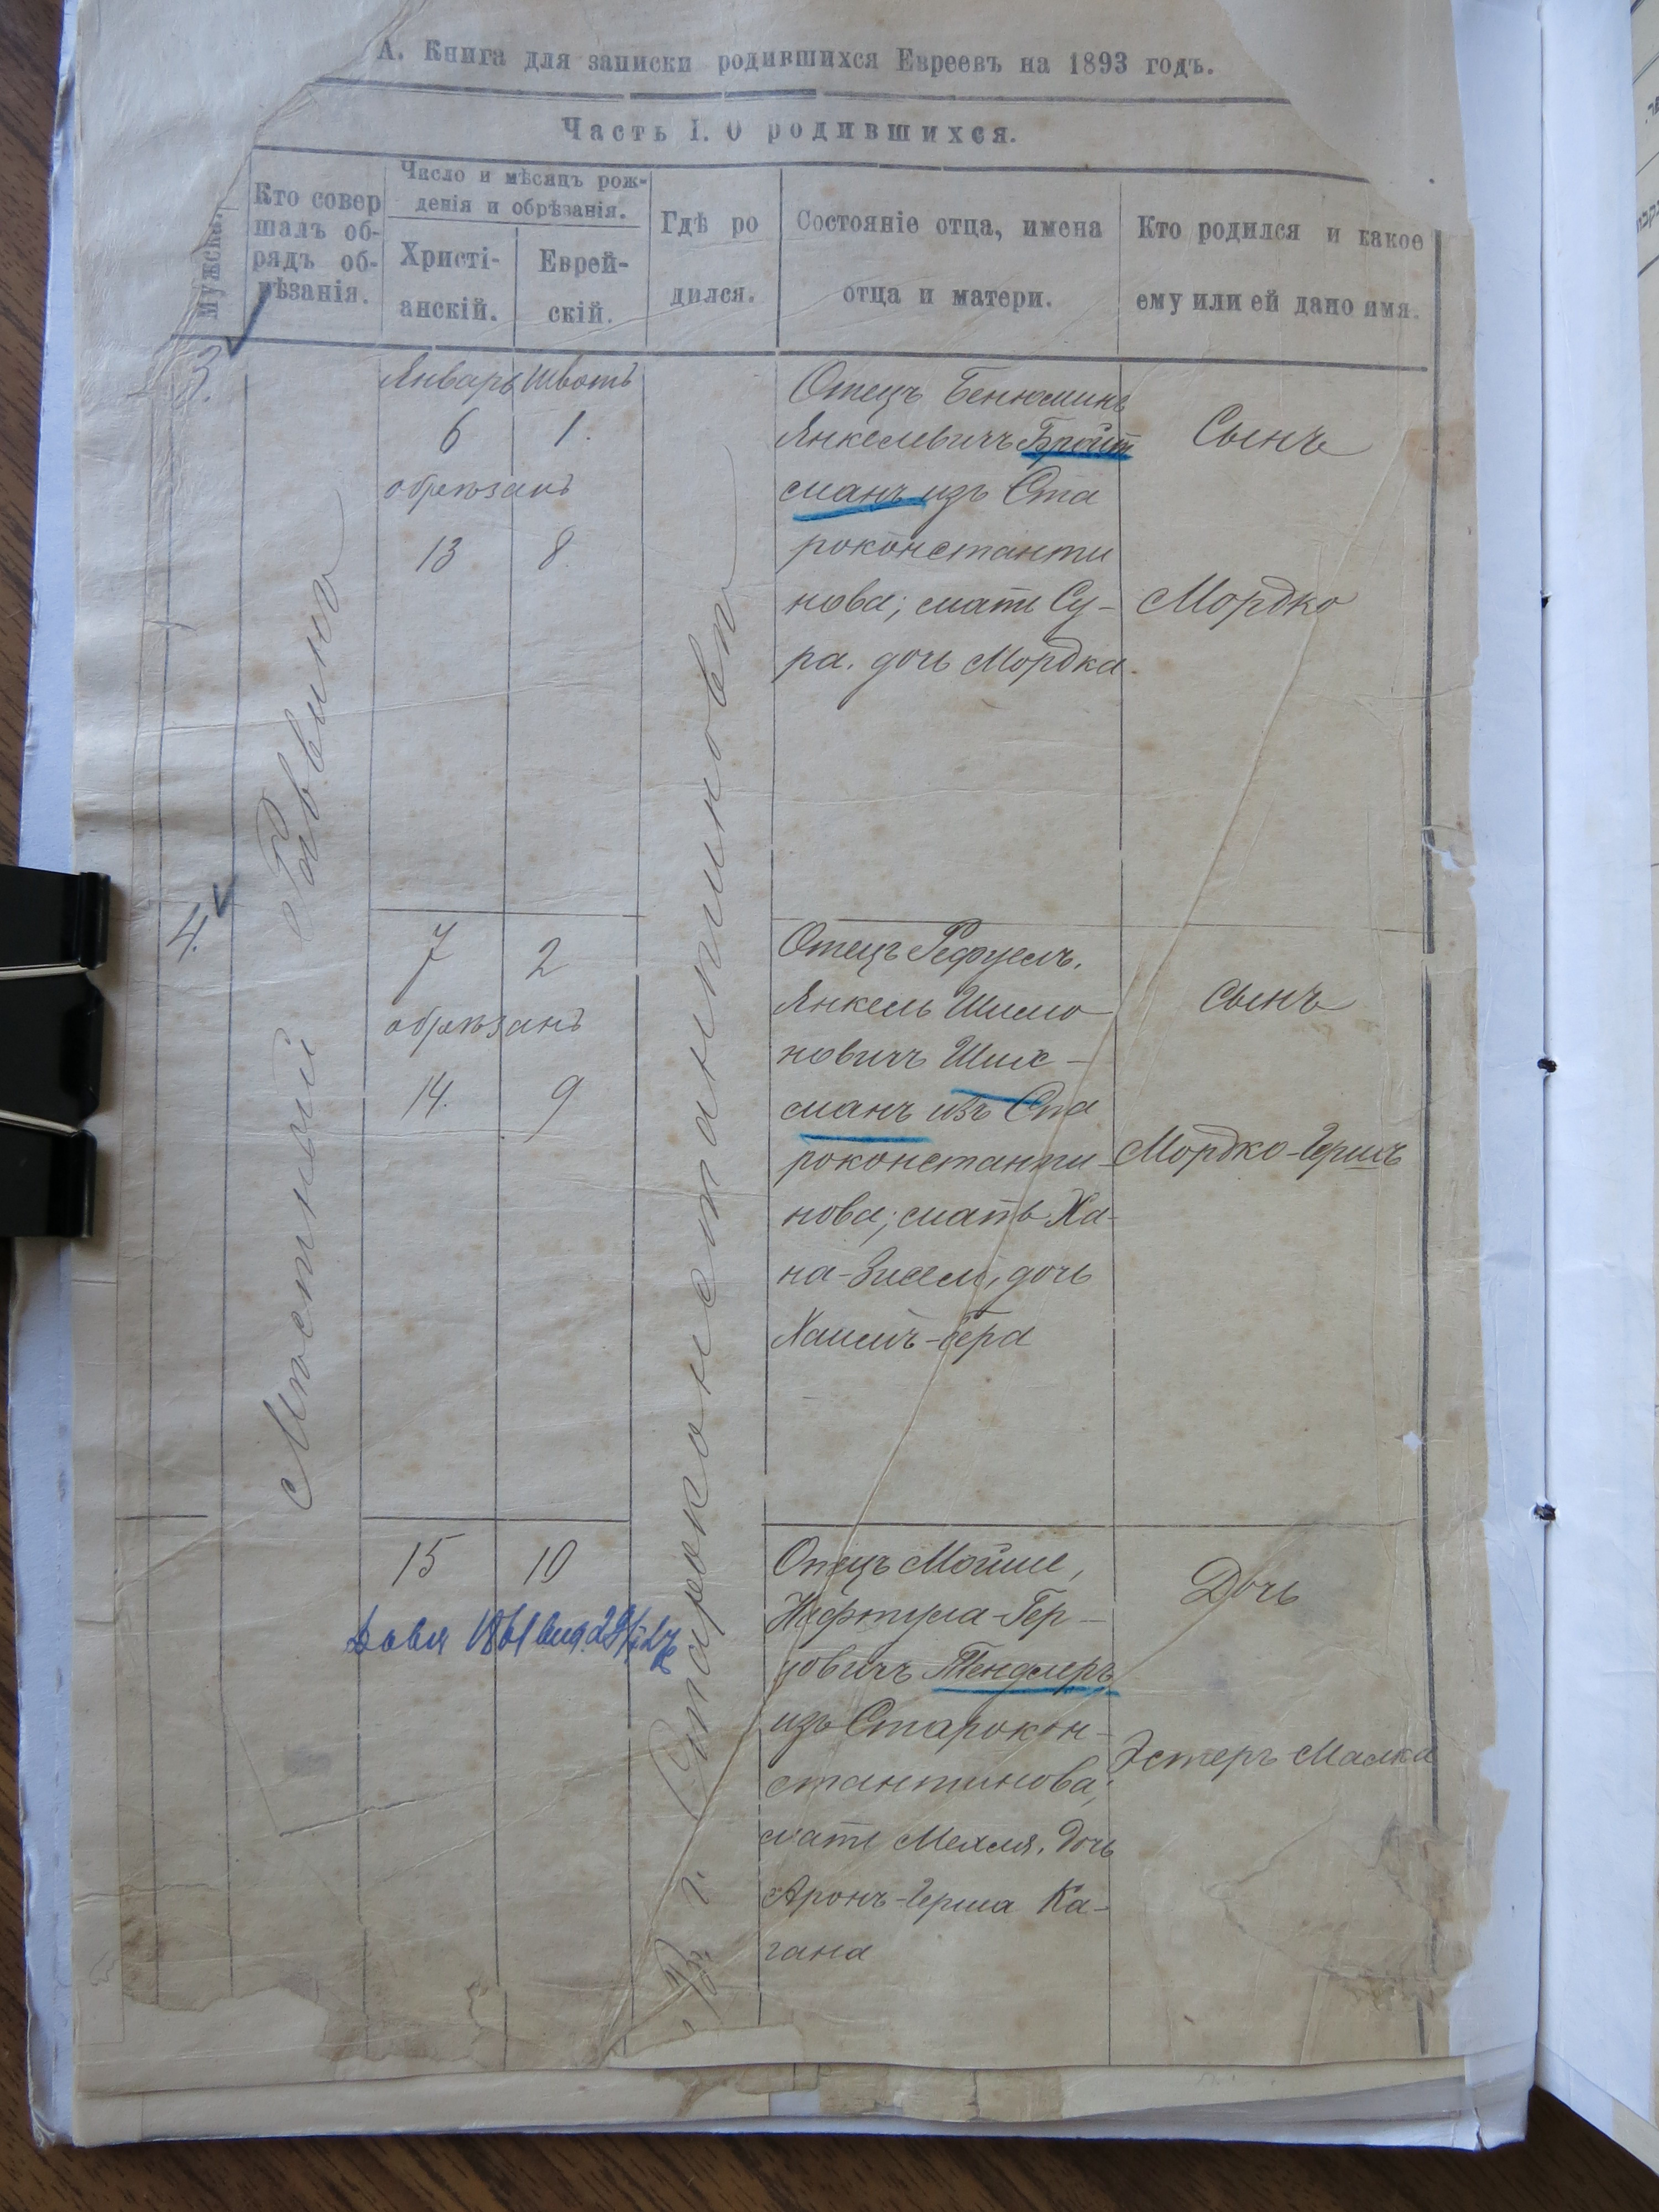 А. Книга для записки родившихся Евреевъ на 1893 годъ.
Часть I. О родившихся.
Мужска
Кто совер
шалъ об-
рядъ об-
рѣзанія.
Число и мѣсяцъ рож-
денія и обрѣзанія.
Христі-
анскій.
Еврей-
скій.
Гдѣ ро
дился.
Состояніе отца, имена
отца и матери.
Кто родился и какое
ему или ей дано имя.
Мѣстный Раввинъ
Въ г. Староконстантиновѣ
3.
Январь Шватъ
6 1.
обрѣзанъ
13 8.
Отецъ Бенюминъ
Янкелевичъ Бройт
манъ изъ Ста
роконстанти
нова; мать Су-
ра. дочь Мордка.
Сынъ
Мордко
4.
7 2
обрѣзанъ
14. 9
Отецъ Рефуелъ.
Янкель Шимо
новичъ
манъ изъ Ста
роконстанти-
нова; мать Ха-
на-Зисел, дочь
Хаимъ-Бера
Сынъ
Мордко-Гершъ
15 10
Отецъ Мойше,
Нафтула-Гер-
цовичъ Тендлеръ
изъ Старокон-
стантинова;
мать Мехля. дочь
Аронъ-Герша Ка-
гана
Дочь
Эстеръ Малка